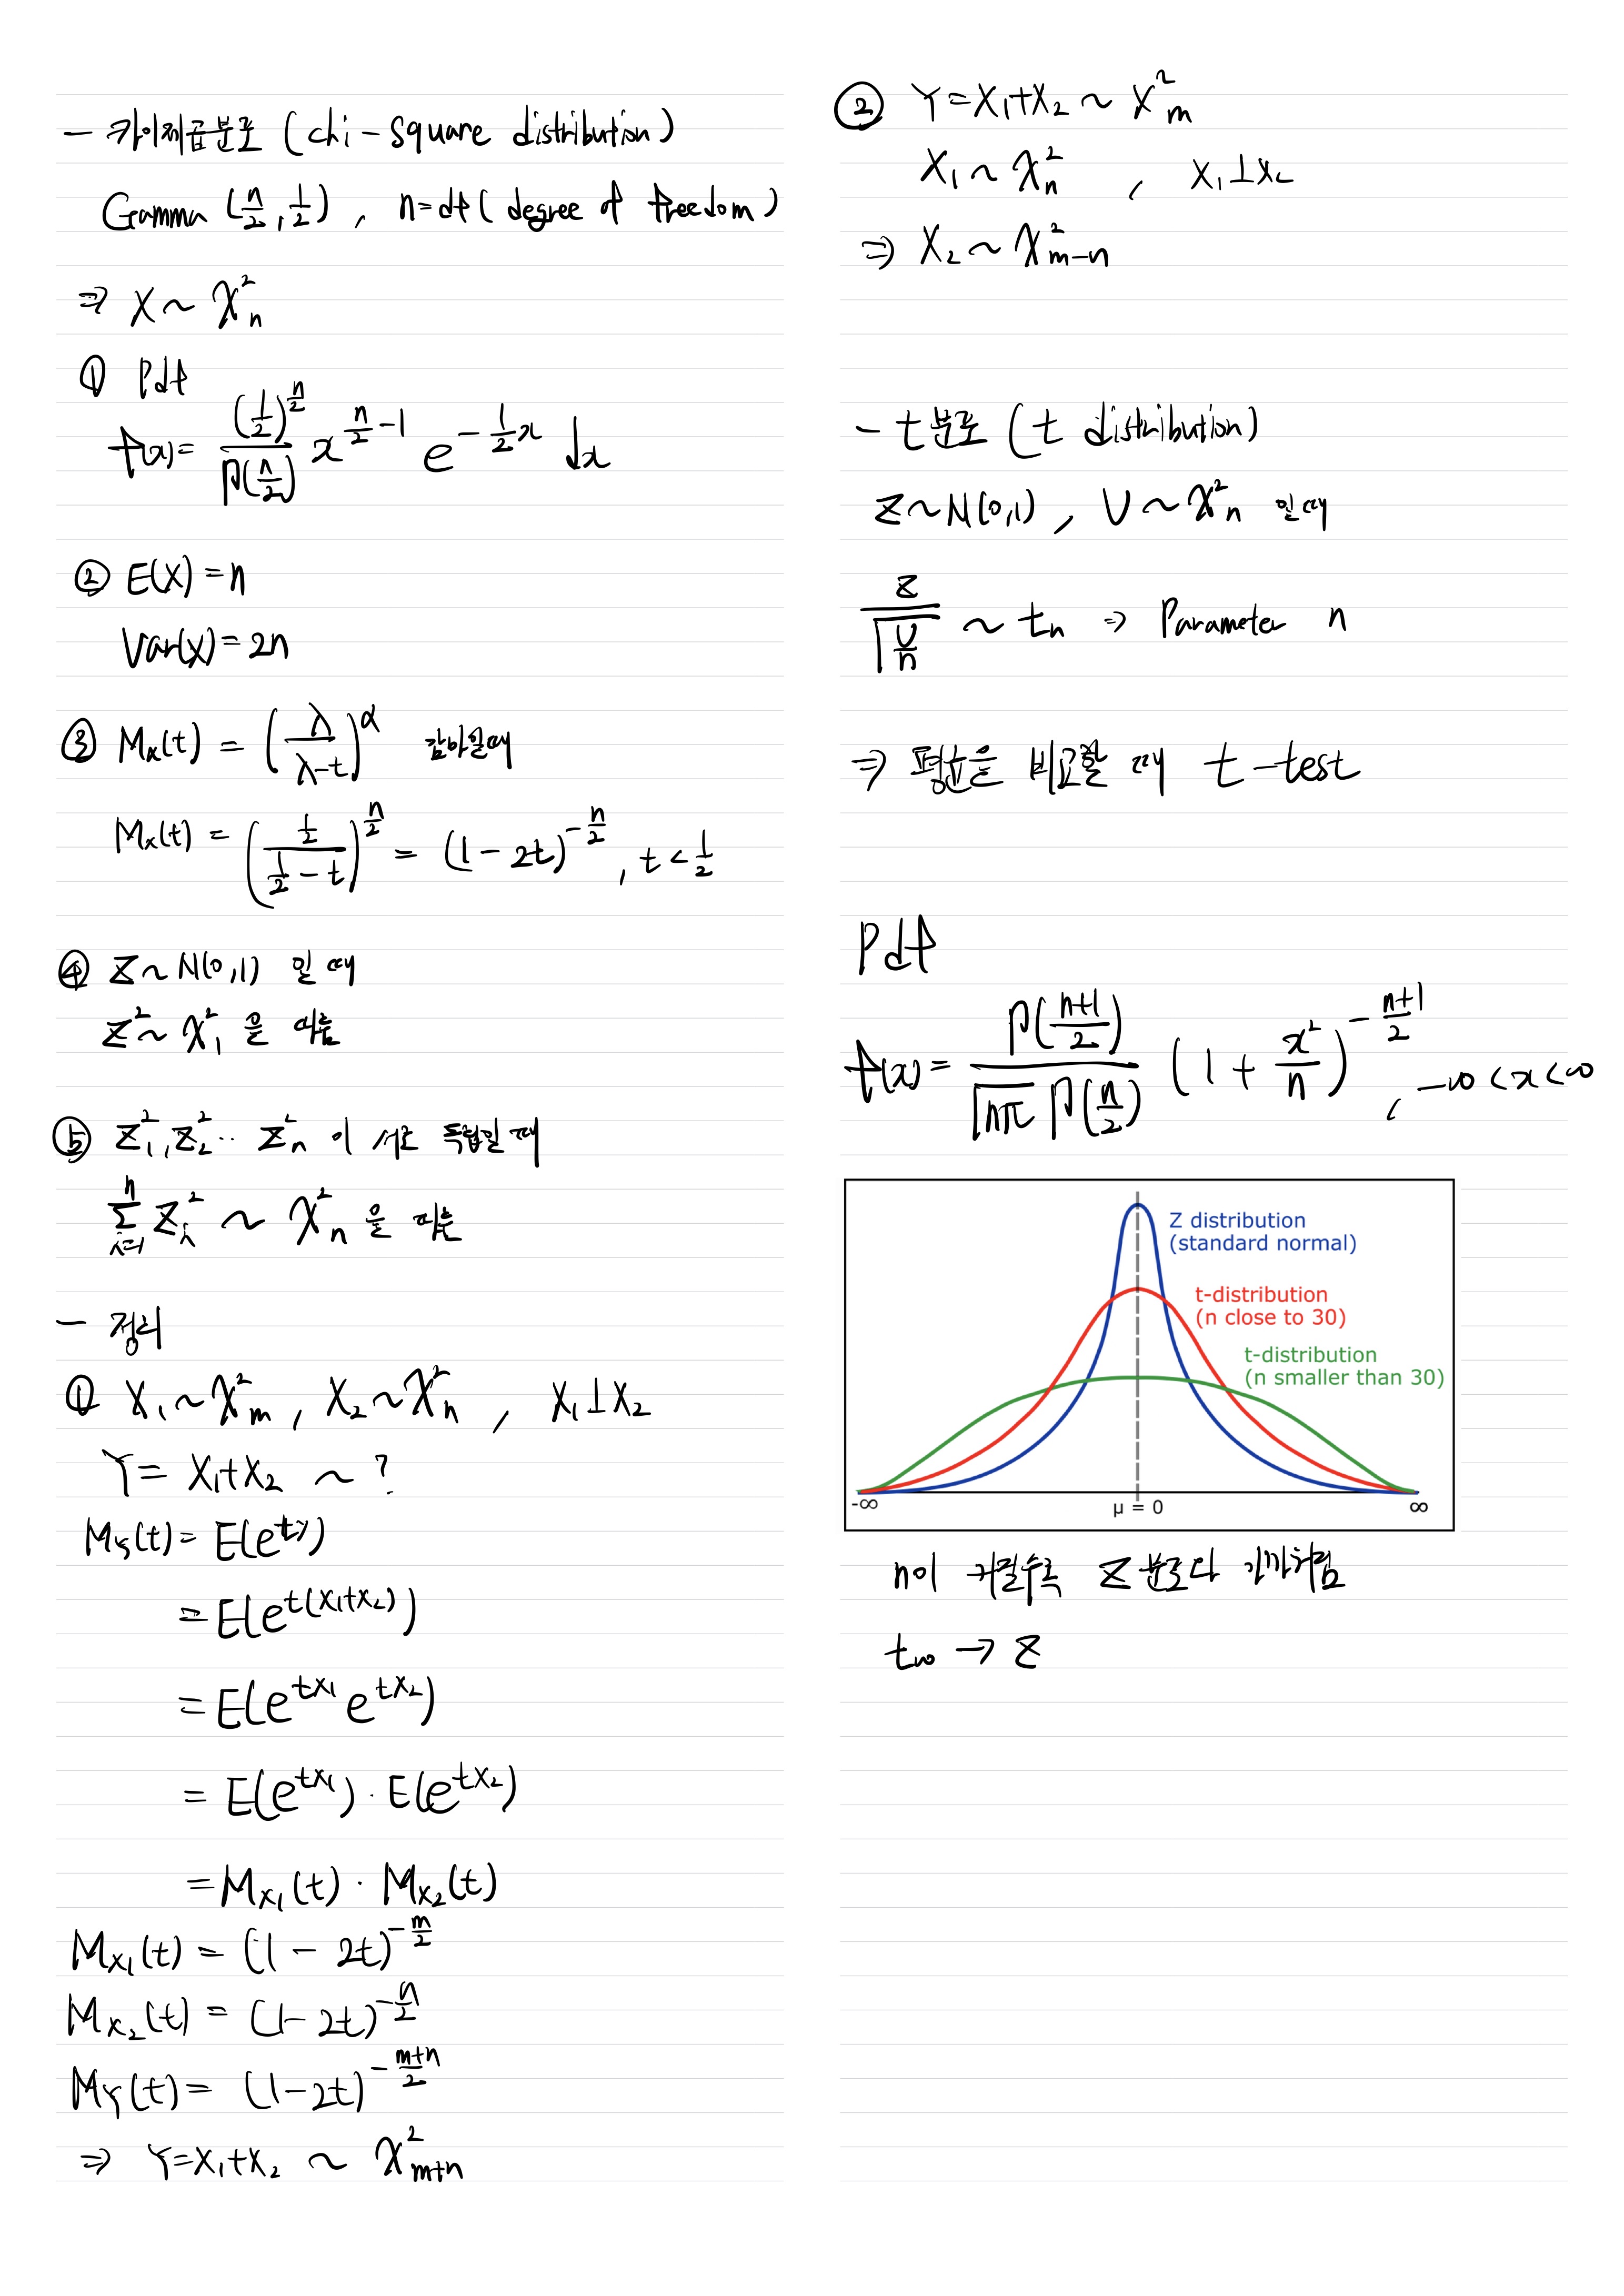 - 카이제곱분포 (chi-square distribution)
Gamma (n/2, 1/2), n=df (degree of freedom)
⇒ X ~ χ²ₙ
① Pdf
f(x) = (1/2)^(n/2) / Γ(n/2) x^(n/2 - 1) e^(-1/2 x) dx
② E(X) = n
Var(X) = 2n
③ Mx(t) = (λ/(λ-t))^α 감마일때
Mx(t) = ((1/2)/(1/2 - t))^(n/2) = (1 - 2t)^(-n/2), t < 1/2
④ Z ~ N(0,1) 일 때
Z² ~ χ²₁ 을 따름
⑤ Z₁², Z₂² ·· Zₙ² 이 서로 독립일 때
Σⁿᵢ₌₁ Zᵢ² ~ χ²ₙ 을 따름
- 정리
① X₁ ~ χ²m, X₂ ~ χ²n, X₁⊥X₂
Y = X₁+X₂ ~ ?
M_Y(t) = E(e^(ty))
= E(e^(t(X₁+X₂)))
= E(e^(tX₁) e^(tX₂))
= E(e^(tX₁)) · E(e^(tX₂))
= M_X₁(t) · M_X₂(t)
M_X₁(t) = (1 - 2t)^(-m/2)
M_X₂(t) = (1 - 2t)^(-n/2)
M_Y(t) = (1 - 2t)^(-(m+n)/2)
⇒ Y=X₁+X₂ ~ χ²m+n
② Y = X₁+X₂ ~ χ²m
X₁ ~ χ²n, X₁⊥X₂
⇒ X₂ ~ χ²m-n
- t분포 (t distribution)
Z ~ N(0,1), U ~ χ²n 일때
Z / √(U/n) ~ tn ⇒ Parameter n
⇒ 평균을 비교할 때 t-test
Pdf
f(x) = Γ((n+1)/2) / (√nπ Γ(n/2)) (1 + x²/n)^(-(n+1)/2), -∞ < x < ∞
Z distribution
(standard normal)
t-distribution
(n close to 30)
t-distribution
(n smaller than 30)
-∞ μ = 0 ∞
n이 커질수록 Z분포와 가까워짐
t∞ → Z